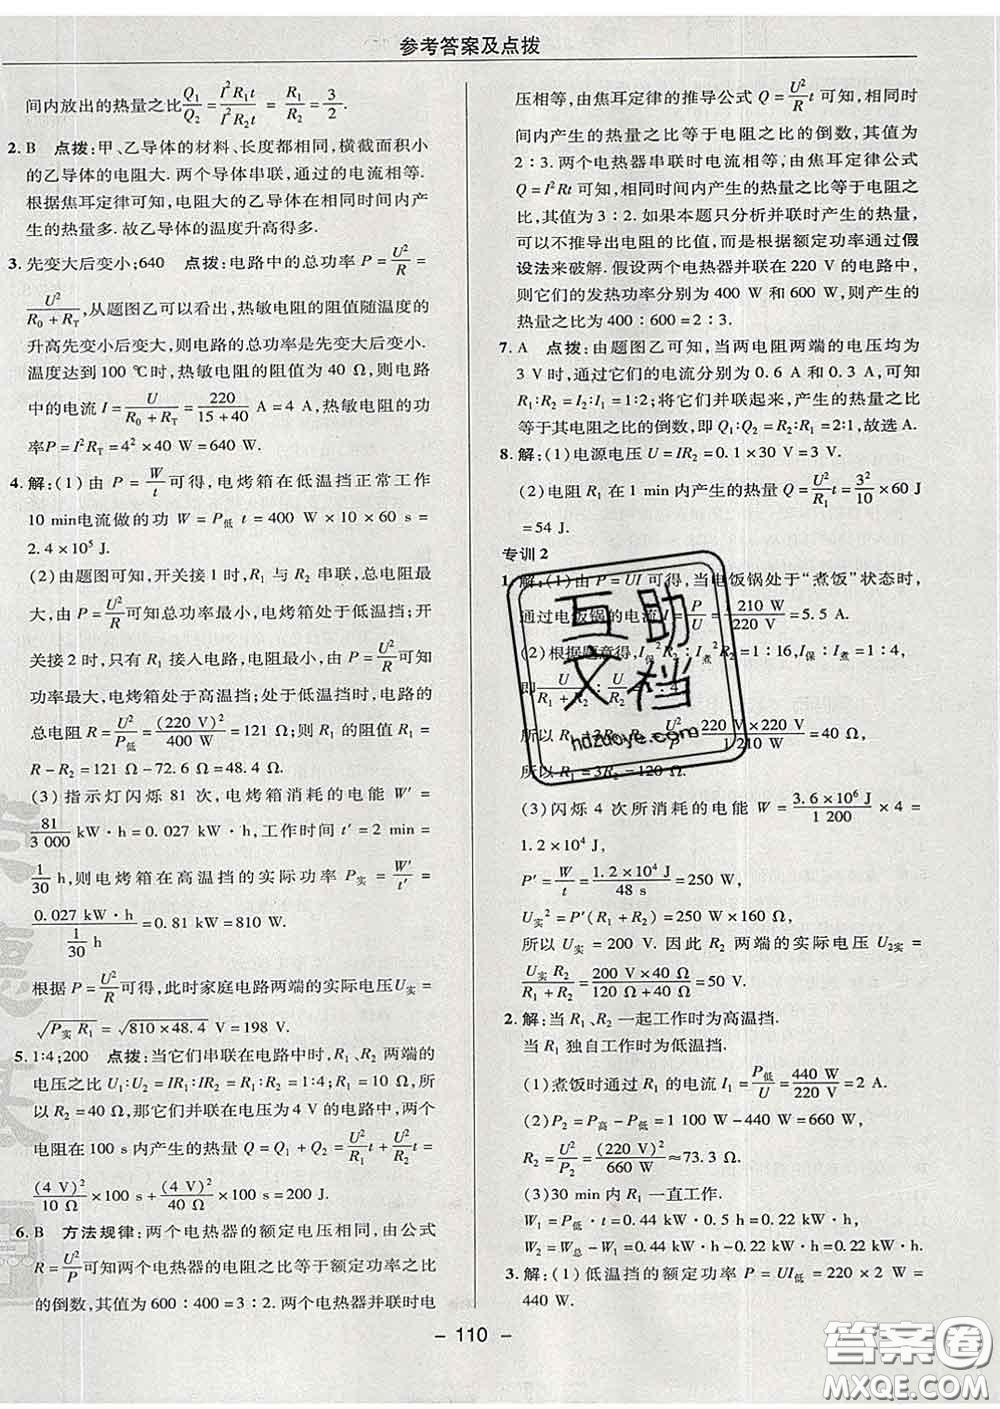 参考答案及点拨
间内放出的热量之比Q₁/Q₂=I²R₁t/I²R₂t = R₁/R₂=3/2.
2. B 点拨:甲、乙导体的材料、长度都相同,横截面积小
的乙导体的电阻大. 两个导体串联,通过的电流相等.
根据焦耳定律可知,电阻大的乙导体在相同时间内产
生的热量多. 故乙导体的温度升高得多.
3. 先变大后变小;640 点拨:电路中的总功率 P=U²/R=
U²/(R₀+R_T),从题图乙可以看出,热敏电阻的阻值随温度的
升高先变小后变大,则电路的总功率是先变大后变小.
温度达到 100 ℃时,热敏电阻的阻值为 40 Ω,则电路
中的电流 I=U/(R₀+R_T)=220/(15+40) A=4 A,热敏电阻的功
率P=I²R_T=4²×40 W=640 W.
4. 解:(1)由 P=W/t 可得,电烤箱在低温挡正常工作
10 min电流做的功 W=P低 t=400 W×10×60 s=
2.4×10⁵ J.
(2)由题图可知,开关接 1 时,R₁ 与 R₂ 串联,总电阻最
大,由 P=U²/R可知总功率最小,电烤箱处于低温挡;开
关接 2 时,只有 R₁ 接入电路,电阻最小,由 P=U²/R可知
功率最大,电烤箱处于高温挡;处于低温挡时,电路的
总电阻 R=U²/P低=(220 V)²/400 W=121 Ω;则 R₁ 的阻值 R₁=
R-R₂=121 Ω-72.6 Ω=48.4 Ω.
(3)指示灯闪烁 81 次,电烤箱消耗的电能 W′=
81/3 000 kW·h=0.027 kW·h,工作时间 t′=2 min=
1/30 h,则电烤箱在高温挡的实际功率 P实=W′/t′=
0.027 kW·h/(1/30 h)=0.81 kW=810 W.
根据 P=U²/R可得,此时家庭电路两端的实际电压U实=
√(P实 R₁)=√(810×48.4) V=198 V.
5. 1∶4;200 点拨:当它们串联在电路中时,R₁、R₂ 两端的
电压之比 U₁∶U₂=IR₁∶IR₂=R₁∶R₂=1∶4;R₁=10 Ω,所
以 R₂=40 Ω,那它们并联在电压为 4 V 的电路中,两个
电阻在 100 s 内产生的热量 Q=Q₁+Q₂=U²/R₁ t+U²/R₂ t=
(4 V)²/10 Ω×100 s+(4 V)²/40 Ω×100 s=200 J.
6. B 方法规律:两个电热器的额定电压相同,由公式
R=U²/P可知两个电热器的电阻之比等于额定功率之比
的倒数,其值为 600∶400=3∶2. 两个电热器并联时电
压相等,由焦耳定律的推导公式 Q=U²/R t 可知,相同时
间内产生的热量之比等于电阻之比的倒数,其值为
2∶3. 两个电热器串联时电流相等,由焦耳定律公式
Q=I²Rt 可知,相同时间内产生的热量之比等于电阻之
比,其值为 3∶2. 如果本题只分析并联时产生的热量,
可以不推导出电阻的比值,而是根据额定功率通过假
设法来破解. 假设两个电热器并联在 220 V 的电路中,
则它们的发热功率分别为 400 W 和 600 W,则产生的
热量之比为 400∶600=2∶3.
7. A 点拨:由题图乙可知,当两电阻两端的电压均为
3 V 时,通过它们的电流分别为 0.6 A 和 0.3 A,可知
R₁∶R₂=I₂∶I₁=1∶2;将它们并联起来,产生的热量之比
等于其电阻之比的倒数,即 Q₁∶Q₂=R₂∶R₁=2∶1,故选 A.
8. 解:(1)电源电压 U=IR₂=0.1×30 V=3 V.
(2)电阻 R₁ 在 1 min 内产生的热量 Q=U²/R₁ t=3²/10×60 J
=54 J.
专训 2
1. 解:(1)由 P=UI 可得,当电饭锅处于“煮饭”状态时,
通过电饭锅的电流 I=P/U=1 210 W/220 V=5.5 A.
(2)根据题意得,I保²R₂∶I煮²R₂=1∶16,I保∶I煮=1∶4,
即U/(R₁+R₂)∶U/R₂=1∶4,
所以 R₁=3R₂ R₂=U²/P=220 V×220 V/1 210 W=40 Ω,
所以 R₁=3R₂=120 Ω.
(3)闪烁 4 次所消耗的电能 W=3.6×10⁶ J/1 200×4=
1.2×10⁴ J,
P′=W/t=1.2×10⁴ J/48 s=250 W,
U实²=P′(R₁+R₂)=250 W×160 Ω,
所以 U实=200 V. 因此 R₂ 两端的实际电压 U₂实=
U实 R₂/(R₁+R₂)=200 V×40 Ω/(120 Ω+40 Ω)=50 V.
2. 解:当 R₁、R₂ 一起工作时为高温挡.
当 R₁ 独自工作时为低温挡.
(1)煮饭时通过 R₁ 的电流 I₁=P低/U=440 W/220 V=2 A.
(2)P₂=P高-P低=1 100 W-440 W=660 W,
R₂=U²/P₂=(220 V)²/660 W≈73.3 Ω.
(3)30 min 内 R₁ 一直工作.
W₁=P低·t=0.44 kW×0.5 h=0.22 kW·h,
W₂=W总-W₁=0.44 kW·h-0.22 kW·h=0.22 kW·h.
3. 解:(1)低温挡的额定功率 P=UI低=220×2 W=
440 W.
- 110 -
互助
文档
hdzuoye.com
答案圈
MXQE.COM